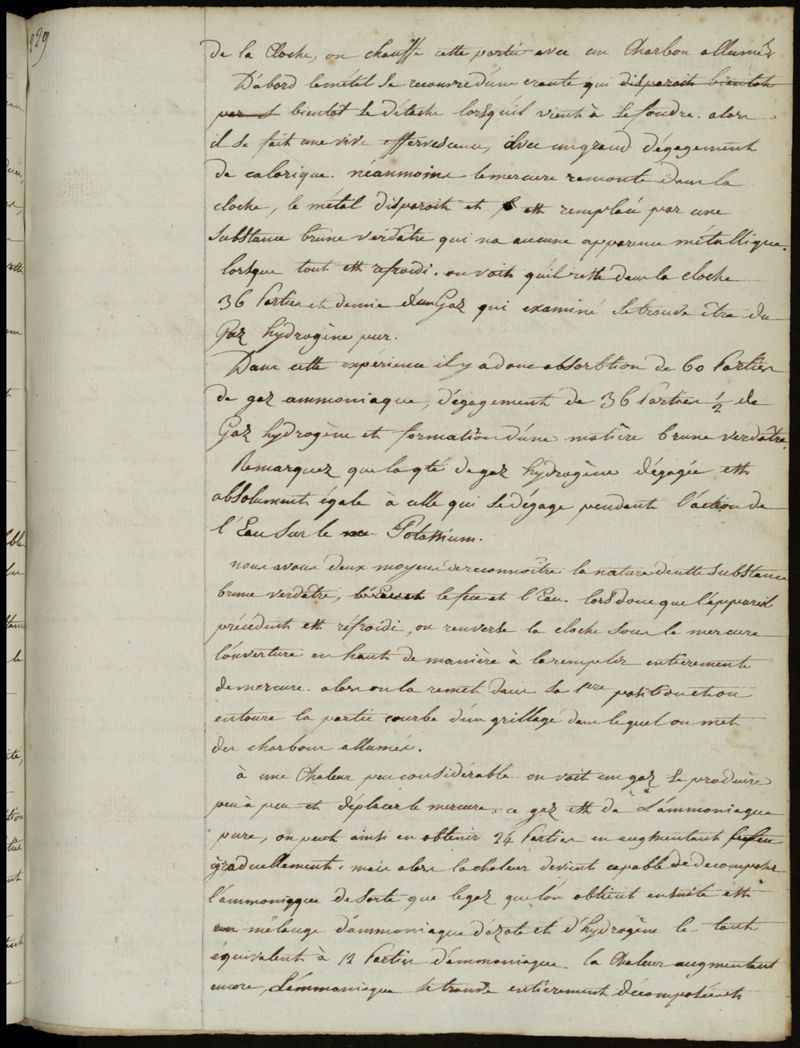 229
de la Cloche, on chauffe cette partie avec un Charbon allumé.
D'abord le métal se recouvre d'une croute qui disparoit bientot
par s bientot se détache lorsqu'il vient à se fondre. alors
il se fait une vive effervescence, avec un grand dégagement
de calorique. néanmoins le mercure remonte dans la
cloche, le métal disparoit et est remplacé par une
substance brune verdâtre qui na aucune apparence métallique.
lorsque tout est refroidi. on voit qu'il reste dans la cloche
36 Parties et demie d'un Gaz qui examiné se trouve être du
Gaz hydrogène pur.
Dans cette expérience il y a donc absorbtion de 60 Parties
de gaz ammoniaque, dégagement de 36 Parties 1/2 de
Gaz hydrogène et formation d'une matière brune verdâtre.
Remarquez que la qté de gaz hydrogène dégagée est
absolument égale à celle qui se dégage pendant l'action de
l'Eau sur le Potassium.
nous avons deux moyens de reconnoître la nature de cette substance
brune verdâtre, le feu et l'Eau. lors donc que l'appareil
précédent est réfroidi, on renverse la cloche sous le mercure
l'ouverture en haut de manière à la remplir entièrement
de mercure. alors on la remet dans sa 1ere position et on
entoure la partie courbe d'un grillage dans lequel on met
des charbons allumés.
à une Chaleur peu considérable on voit un gaz se produire
peu à peu et déplacer le mercure. ce gaz est de L'ammoniaque
pure, on peut ainsi en obtenir 24 Parties en augmentant le feu
graduellement. mais alors la chaleur devient capable de decomposer
l'ammoniaque de sorte que le gaz que l'on obtient ensuite est
un mélange d'ammoniaque d'azote et d'hydrogène le tout
équivalent à 12 Parties d'ammoniaque. la Chaleur augmentant
encore, L'ammoniaque se trouve entièrement décomposée et